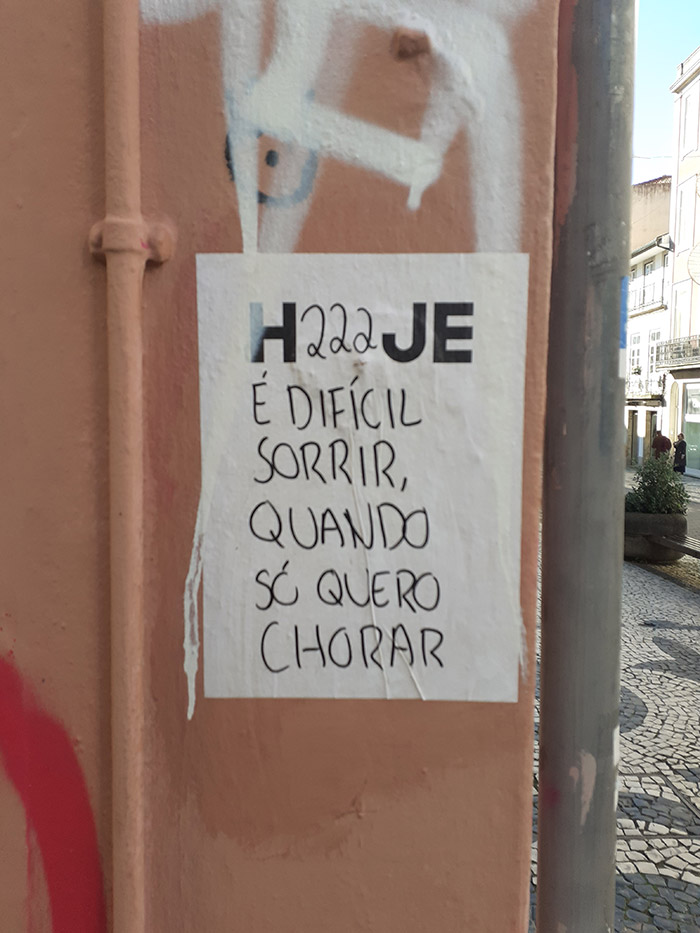 H222JE
É DIFÍCIL
SORRIR,
QUANDO
SÓ QUERO
CHORAR